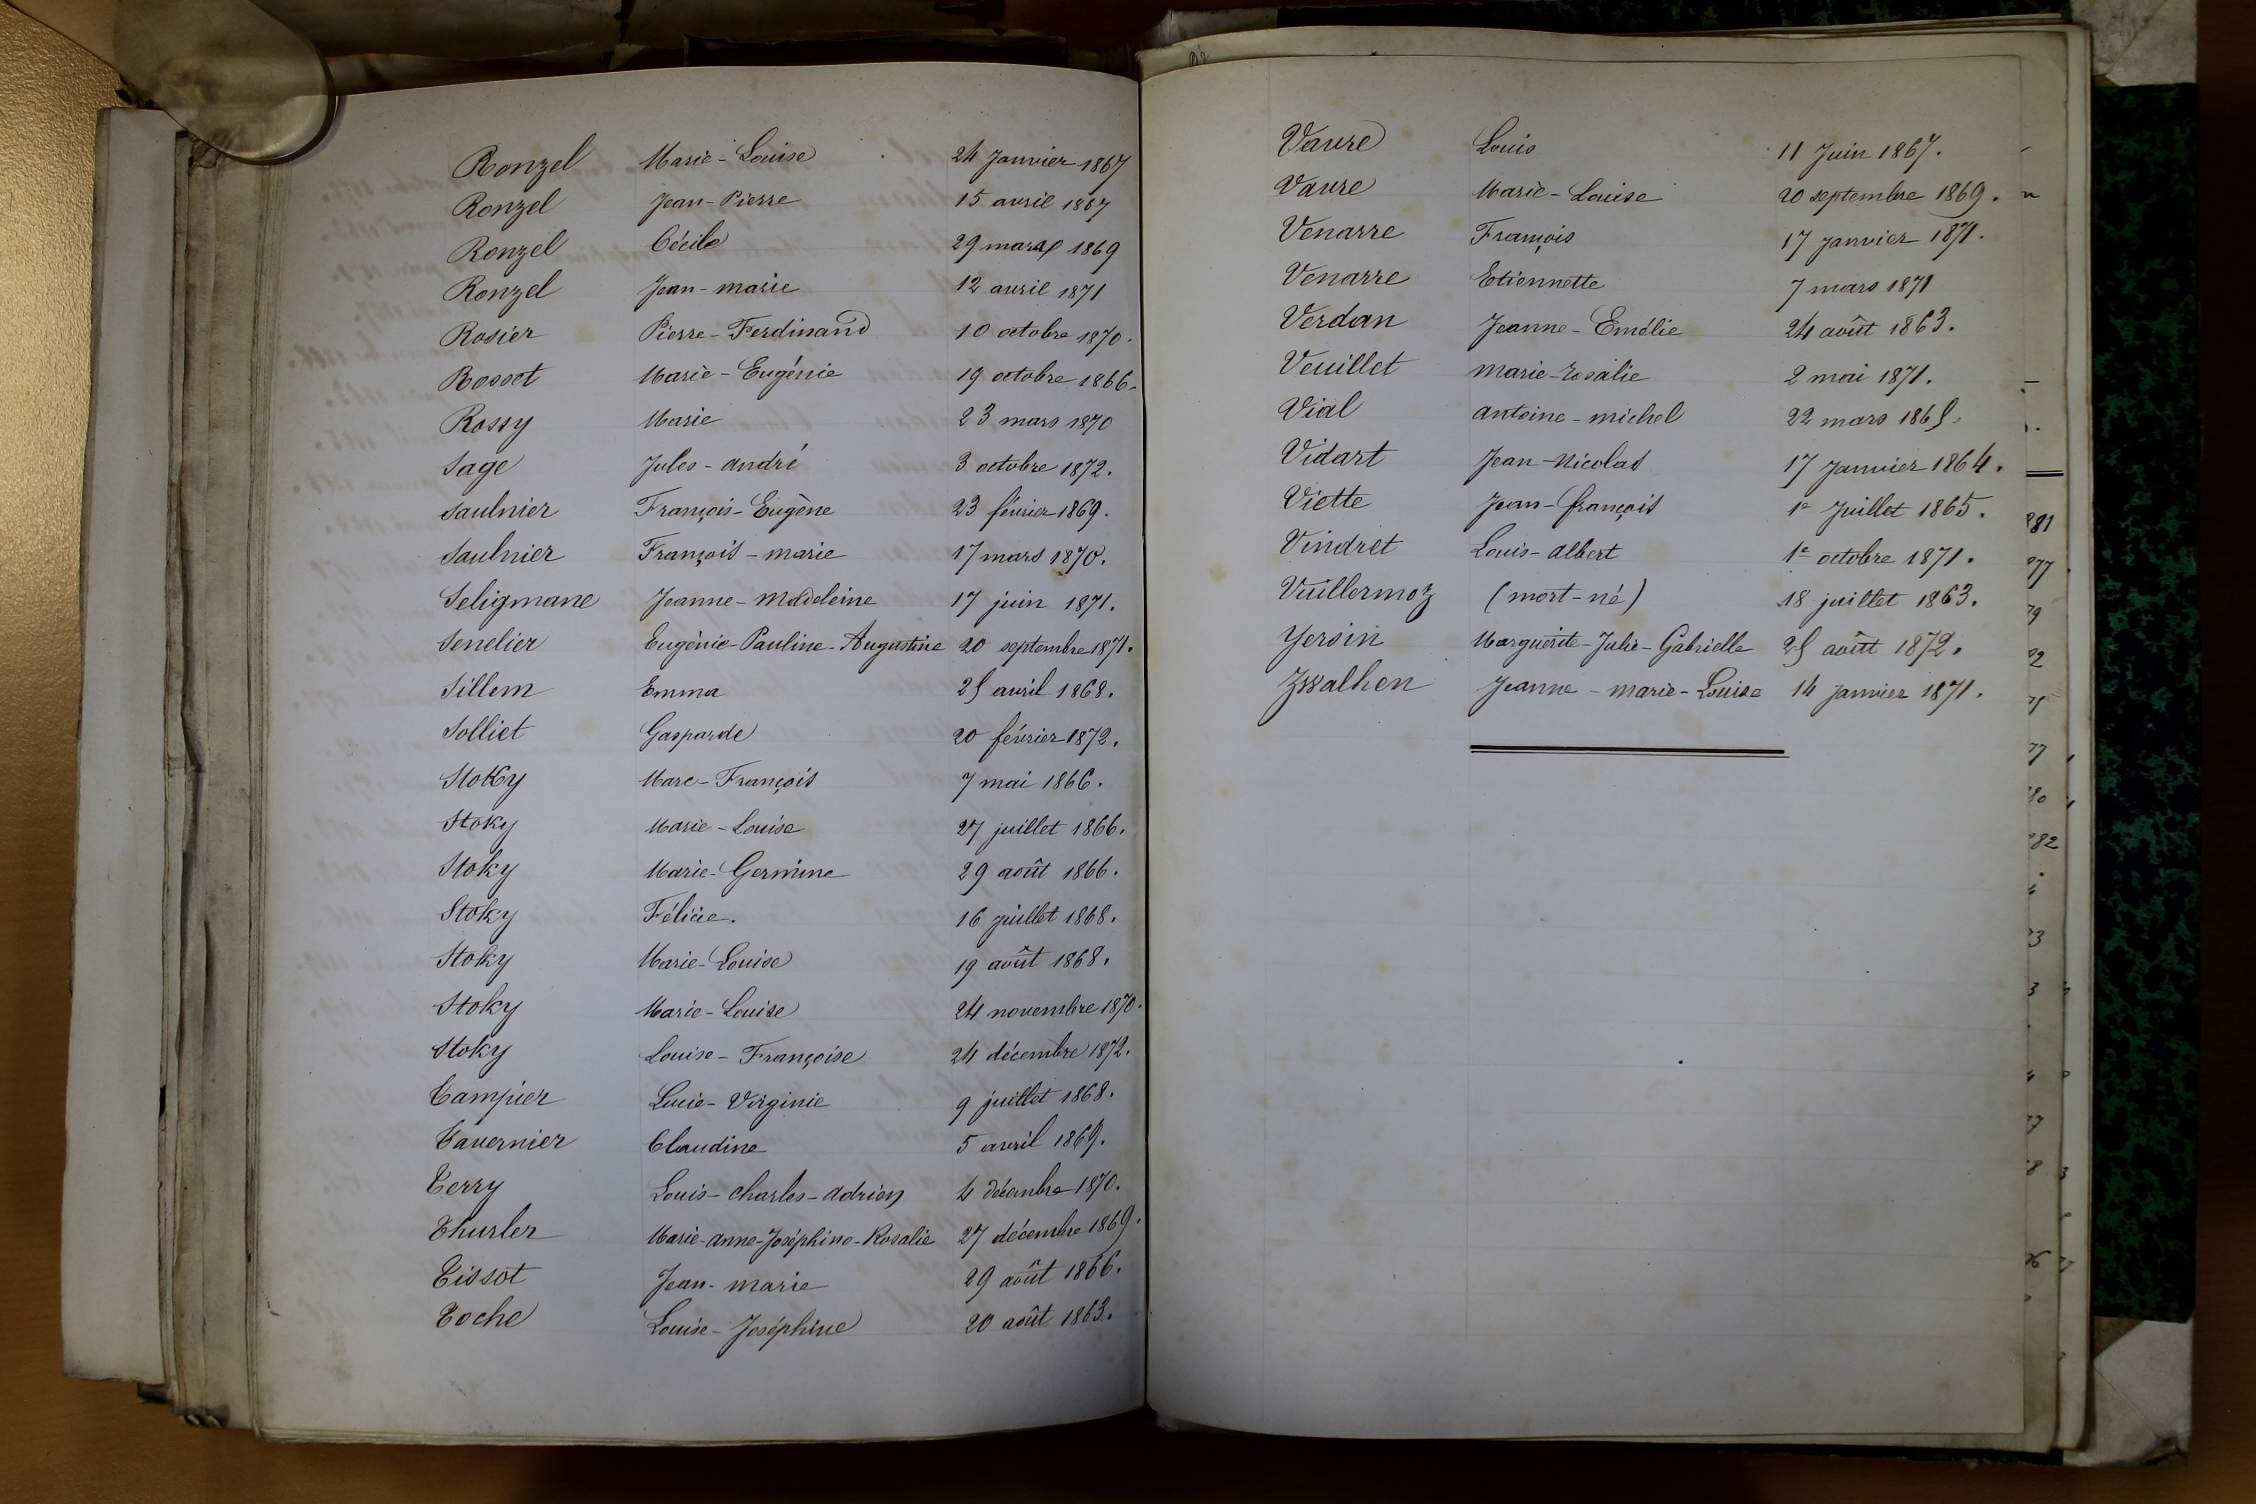 Ronzel Marie-Louise 24 Janvier 1867
Ronzel Jean-Pierre 15 avril 1867
Ronzel Cécile 29 mars 1869
Ronzel Jean-marie 12 avril 1871
Rosier Pierre-Ferdinand 10 octobre 1870.
Rosset Marie-Eugénie 19 octobre 1866.
Rossy Marie 23 mars 1870
Sage Jules-andré 3 octobre 1872.
Saulnier François-Eugène 23 février 1869.
Saulnier François-marie 17 mars 1870.
Seligmane Jeanne-Madeleine 17 juin 1871.
Senelier Eugénie-Pauline-Augustine 20 septembre 1871.
Sillem Emma 25 avril 1868.
Solliet Gasparde 20 février 1872.
Stoky Marc-François 7 mai 1866.
Stoky Marie-Louise 27 juillet 1866.
Stoky Marie-Germine 29 août 1866.
Stoky Félicie. 16 juillet 1868.
Stoky Marie-Louise 19 août 1868.
Stoky Marie-Louise 24 novembre 1870.
Stoky Louise-Françoise 24 décembre 1872.
Tampier Lucie-Virginie 9 juillet 1868.
Tavernier Claudine 5 avril 1869.
Terry Louis-Charles-adrien 4 décembre 1870.
Thurler Marie-anne-Joséphine-Rosalie 27 décembre 1869.
Tissot Jean-marie 29 août 1866.
Toche Louise-Joséphine 20 août 1863.
Vaure Louis 11 Juin 1867.
Vaure Marie-Louise 20 septembre 1869.
Venarre François 17 janvier 1871.
Venarre Etiennette 7 mars 1871
Verdan Jeanne-Emélie 24 août 1863.
Veuillet marie-rosalie 2 mai 1871.
Vial antoine-michel 22 mars 1865.
Vidart Jean-Nicolas 17 Janvier 1864.
Viette Jean-françois 1e Juillet 1865.
Vindret Louis-albert 1e octobre 1871.
Vuillermoz (mort-né) 18 juillet 1863.
Yersin Marguerite-Julie-Gabrielle 25 août 1872.
Zwalhen Jeanne-marie-Louise 14 Janvier 1871.